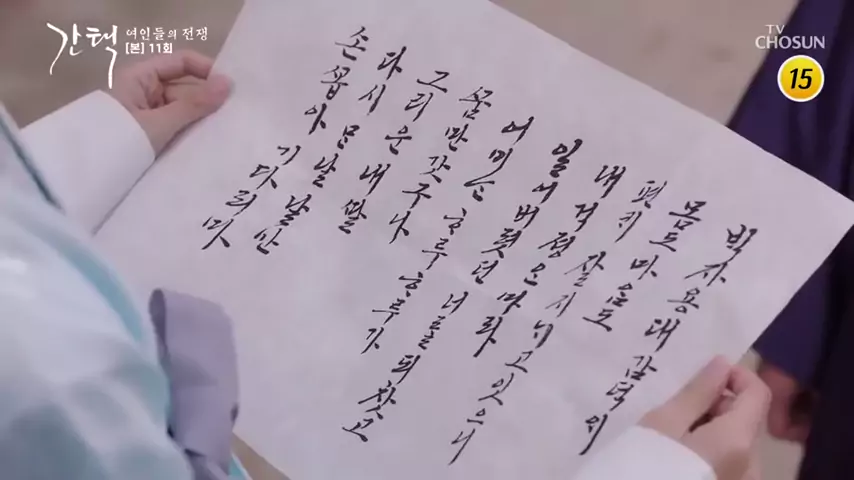 간택
여인들의 전쟁
[본] 11회
TV
CHOSUN
15
빅자용대감덕의
몸도마음도
편히잘지내고잇으니
내걱정은마라
일어버렷던너를되찻고
어미는하루하루가
꿈만갓구나
그리운내딸
다시만날날만
손꼽아기다리마